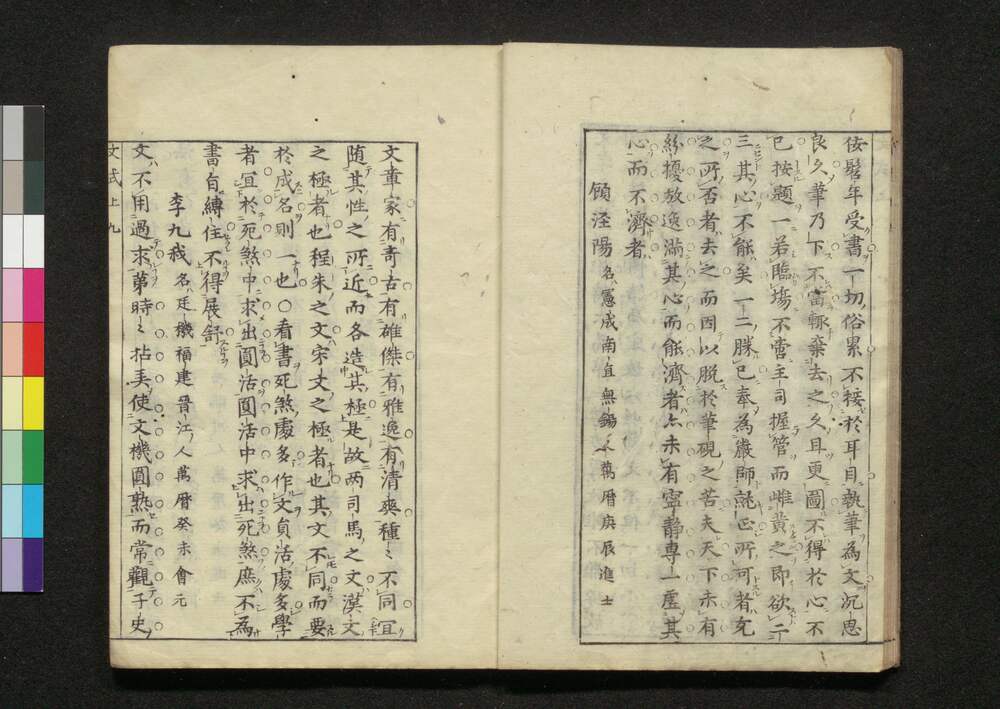 髫年受書一切俗累不接於耳目執筆為文沉思
良久筆乃下不當輙棄去之久且更圖不得於心不
已按題一若臨塲不啻主司握管而雌黄之即欲二
三其心不能矣一二牍已奉為嚴師就正所可者充
之所否者去之而因以脱於筆硯之苦夫天下未有
紛擾放逸滿其心而能濟者亦未有寧静専一虚其
心而不濟者
顧涇陽名憲成南直無錫人萬暦庚辰進士
文章家有奇古有雄傑有雅逸有清爽種〻不同宜
随其性之所近而各造其極是故两司馬之文漢文
之極者也程朱之文宋文之極者也其文不同而要
於成名則一也○看書死煞處多作文貟活處多學
者冝於死煞中求出圓活圓活中求出死煞庶不為
書自縛住不得展舒
李九我名廷機福建晉江人萬暦癸未會元
文不用過求第時〻拈弄使文機圓熟而常觀子史
文式上九